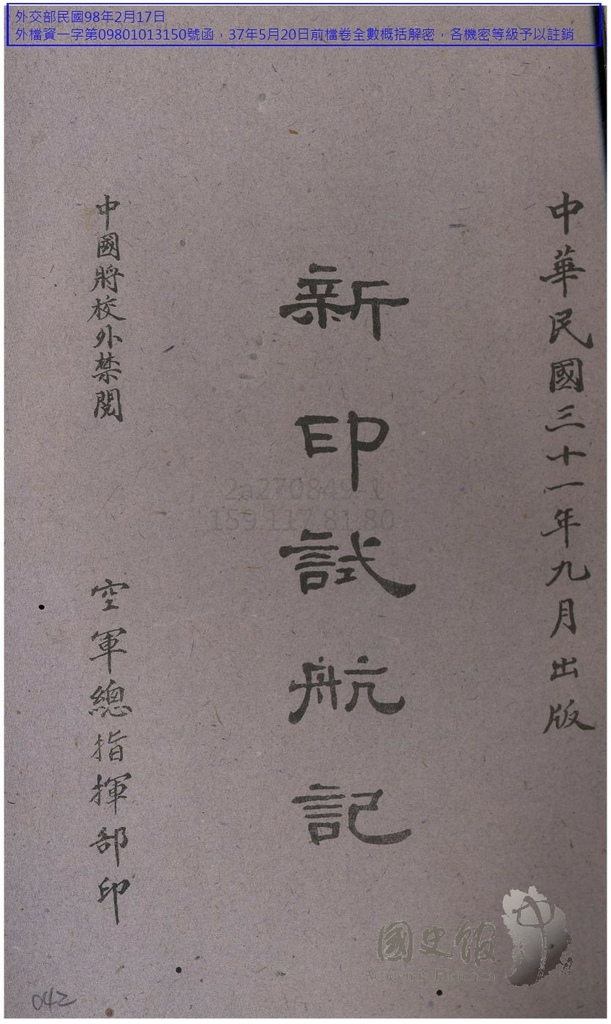 外交部民國98年2月17日
外檔資一字第09801013150號函，37年5月20日前檔卷全數概括解密，各機密等級予以註銷
中華民國三十一年九月出版
新印試航記
中國將校外禁閱
空軍總指揮部印
2a270849-1
159.117.81.80
國史館
042